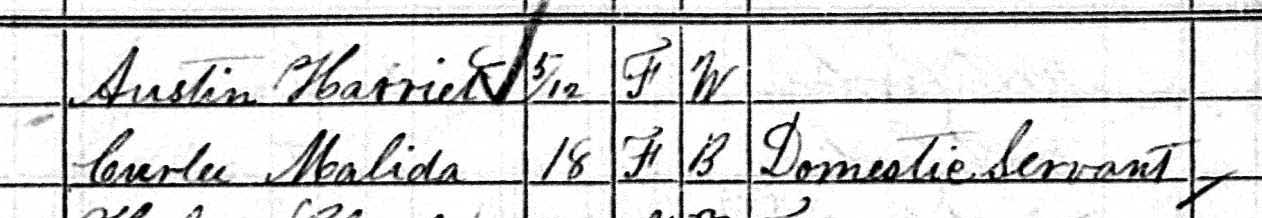 Austin Harriet 5/12 F W
Curlee Malida 18 F B Domestic Servant